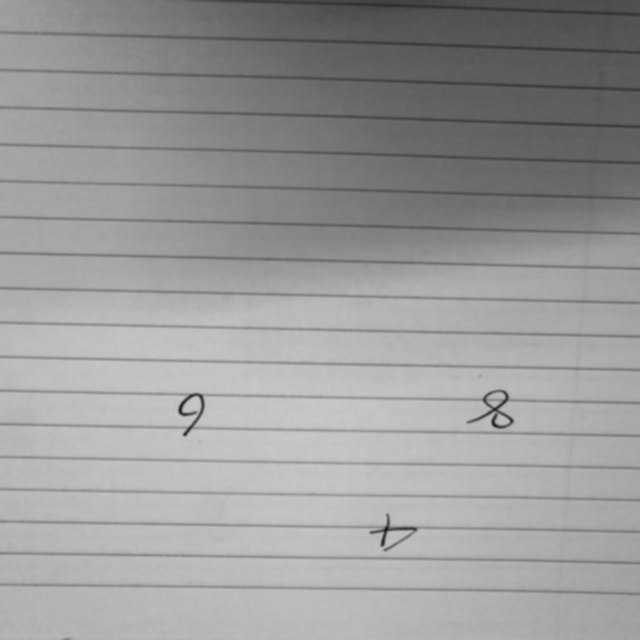 9 8
4